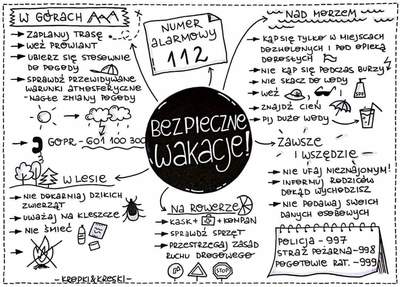 W GÓRACH
ZAPLANUJ TRASĘ
WEŹ PROWIANT
UBIERZ SIĘ STOSOWNIE
DO POGODY
SPRAWDŹ PRZEWIDYWANE
WARUNKI ATMOSFERYCZNE
- NAGŁE ZMIANY POGODY
GOPR - 601 100 300
W LESIE
NIE DOKARMIAJ DZIKICH
ZWIERZĄT
UWAŻAJ NA KLESZCZE
NIE ŚMIEĆ
- KROPKI&KRESKI -
NUMER
ALARMOWY
112
BEZPIECZNE
WAKACJE!
NA ROWERZE
KASK + + KOMPAN
SPRAWDŹ SPRZĘT
PRZESTRZEGAJ ZASAD
RUCHU DROGOWEGO
STOP
NAD MORZEM
KĄP SIĘ TYLKO W MIEJSCACH
DOZWOLONYCH I POD OPIEKĄ
DOROSŁYCH
NIE KĄP SIĘ PODCZAS BURZY
NIE SKACZ DO WODY
WEŹ
ZNAJDŹ CIEŃ
PIJ DUŻO WODY
ZAWSZE
I WSZĘDZIE
NIE UFAJ NIEZNAJOMYM!
INFORMUJ RODZICÓW
DOKĄD WYCHODZISZ
NIE PODAWAJ SWOICH
DANYCH OSOBOWYCH
POLICJA - 997
STRAŻ POŻARNA - 998
POGOTOWIE RAT. - 999